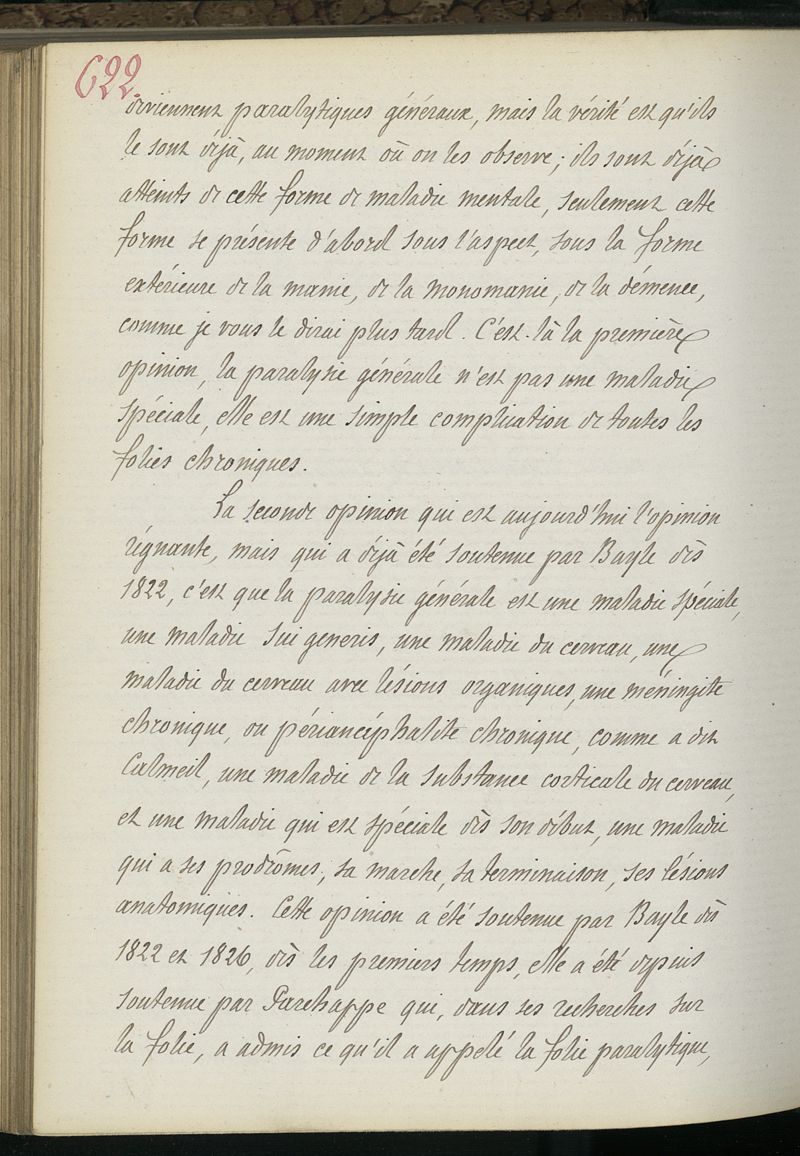 622.
deviennent paralytiques généraux, mais la vérité est qu'ils
le sont déjà, au moment où on les observe; ils sont déjà
atteints de cette forme de maladie mentale, seulement cette
forme se présente d'abord sous l'aspect, sous la forme
extérieure de la manie, de la monomanie, de la démence,
comme je vous le dirai plus tard. C'est-là la première
opinion, la paralysie générale n'est pas une maladie
spéciale, elle est une simple complication de toutes les
folies chroniques.
La seconde opinion qui est aujourd'hui l'opinion
régnante, mais qui a déjà été soutenue par Bayle dès
1822, c'est que la paralysie générale est une maladie spéciale,
une maladie sui generis, une maladie du cerveau, une
maladie du cerveau avec lésions organiques, une méningite
chronique, ou périancéphalite chronique, comme a dit
Calmeil, une maladie de la substance corticale du cerveau,
et une maladie qui est spéciale dès son début, une maladie
qui a ses prodrômes, sa marche, sa terminaison, ses lésions
anatomiques. Cette opinion a été soutenue par Bayle dès
1822 et 1826, dès les premiers temps, elle a été depuis
soutenue par Parchappe qui, dans ses recherches sur
la folie, a admis ce qu'il a appelé la folie paralytique,